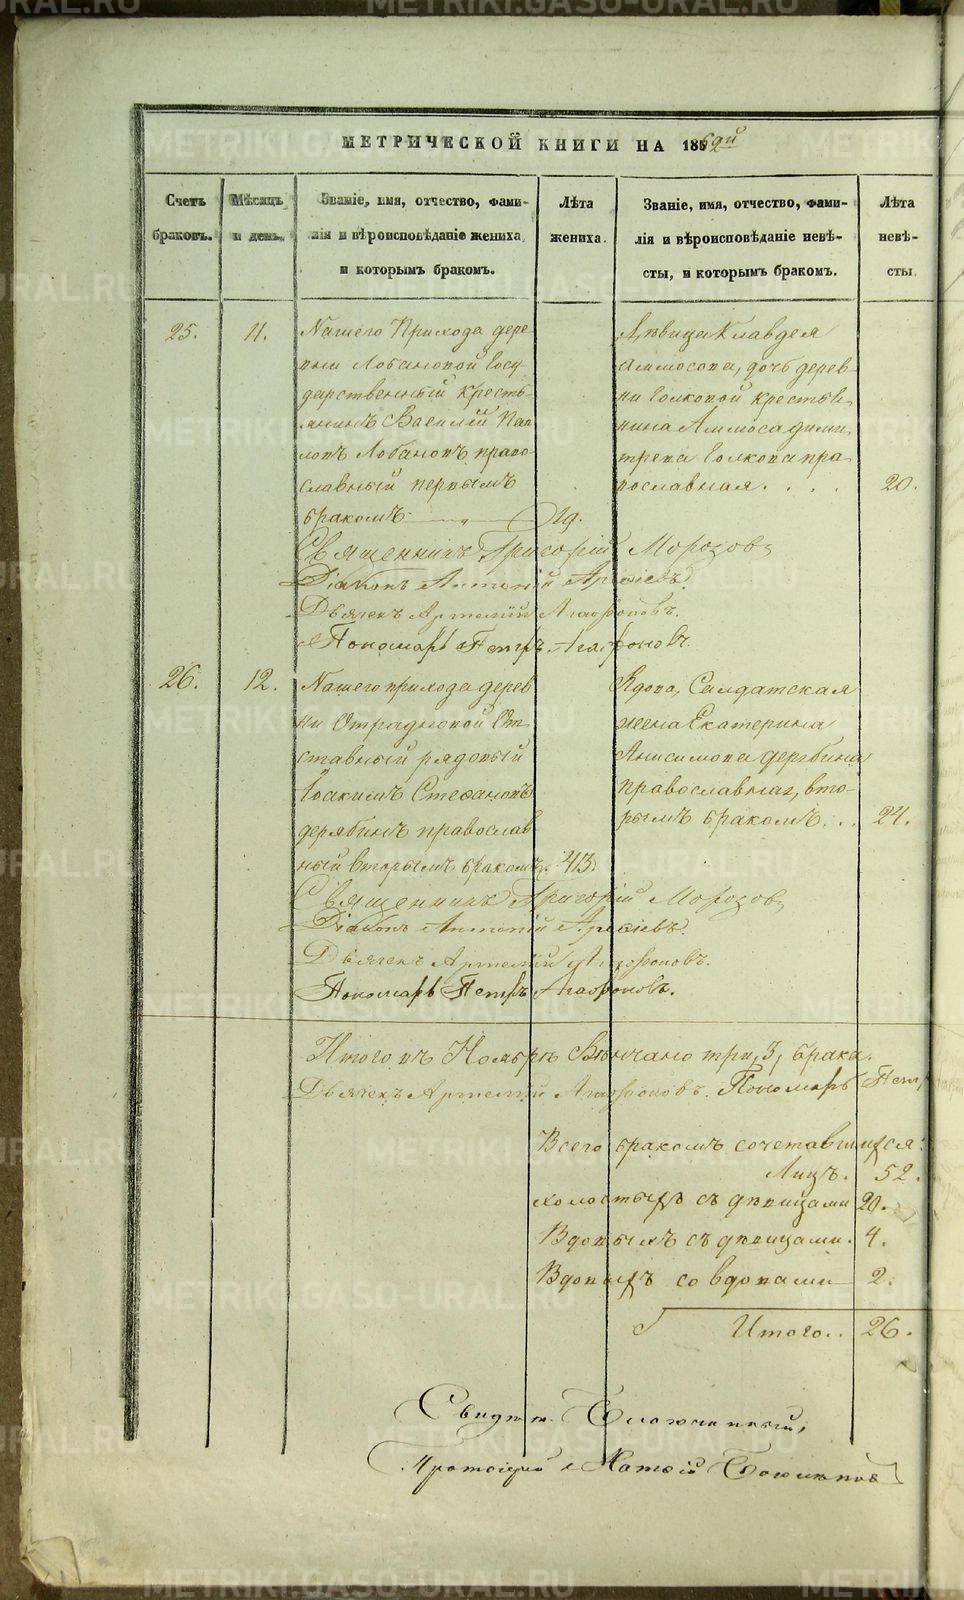 МЕТРИЧЕСКОЙ КНИГИ НА 185 6 ой
Счетъ браковъ.
Мѣсяцъ и день.
Званіе, имя, отчество, фами-
лія и вѣроисповѣданіе жениха
и которымъ бракомъ.
Лѣта жениха.
Званіе, имя, отчество, фами-
лія и вѣроисповѣданіе невѣ-
сты, и которымъ бракомъ.
Лѣта невѣ-
сты
25.
11.
Нашего Прихода дере-
вни Лобановой Госу-
дарственный кресть-
янинъ Василій Пав-
ловъ Лобановъ право-
славный первымъ
бракомъ 19.
Дѣвица Клавдея
Аммосова, дочь дерев-
ни Волковой крестья-
нина Аммоса Дими-
треева Волкова пра-
вославная. . . .
20.
Священникъ Григорій Морозовъ
Діаконъ Антоній
Дьячекъ Артемій Агафоновъ.
Пономарь Петръ Агафоновъ.
26.
12.
Нашего прихода дерев-
ни Отрадновой От-
ставный рядовый
Іоакимъ Стефановъ
Дерябинъ православ-
ный вторымъ бракомъ.
43.
Вдова, Салдатская
жена Екатерина
Анисимова Дерябина
православная, вто-
рымъ бракомъ. . .
24.
Священникъ Григорій Морозовъ
Діаконъ Антоній
Дьячекъ Артемій Агафоновъ.
Пономарь Петръ Агафоновъ.
Итого въ Ноябрѣ Вѣнчано три, 3, брака.
Дьячекъ Артемій Агафоновъ. Пономарь Петръ
Всего бракомъ сочетавшихся:
Лицъ. 52.
холостыхъ съ дѣвицами 20.
Вдовыхъ съ дѣвицами. 4.
Вдовыхъ со вдовами 2.
Итого.. 26.
Свидѣт. Благочинный,
Протоіерей
METRIKI.GASO-URAL.RU